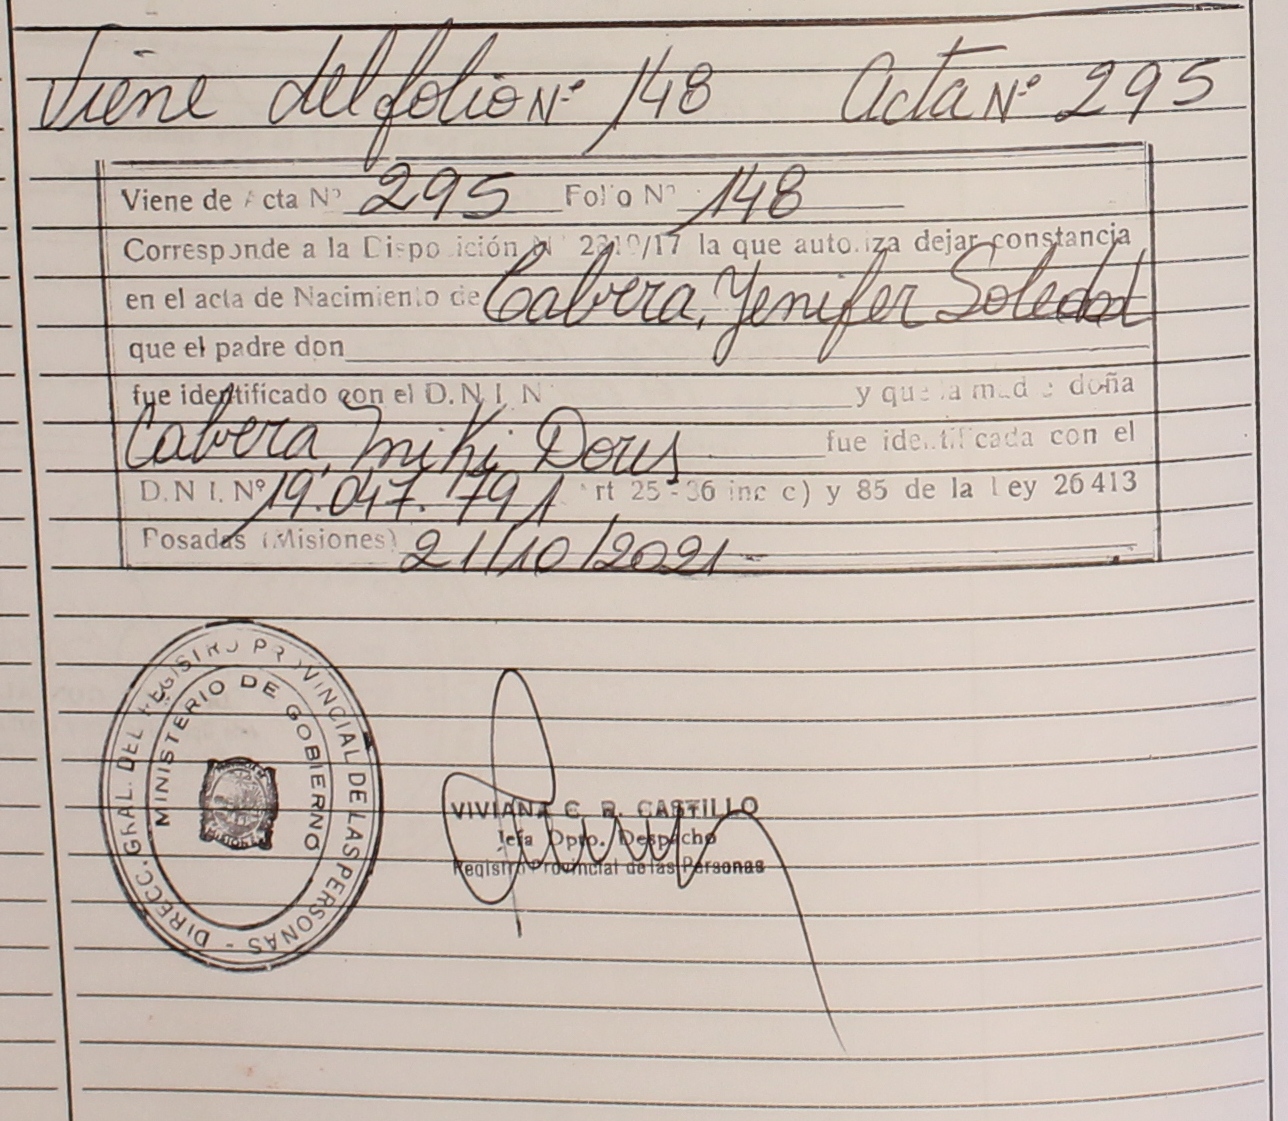 Viene del folio Nº 148 Acta Nº 295
Viene de Acta Nº 295 Folio Nº 148
Corresponde a la Disposición Nº 2210/17 la que autoriza dejar constancia
en el acta de Nacimiento de Cabvera, Yenifer Soledad
que el padre don
fue identificado con el D.N.I. N y que la madre doña
Cabvera, Miki Doris fue identificada con el
D.N.I. Nº 19.047.791 Art 25-36 inc c) y 85 de la Ley 26413
Posadas (Misiones) 21/10/2021-
DIRECC. GRAL. DEL REGISTRO PROVINCIAL DE LAS PERSONAS -
MINISTERIO DE GOBIERNO
VIVIANA C. R. CASTILLO
Jefa Dpto. Despacho
Registro Provincial de las Personas